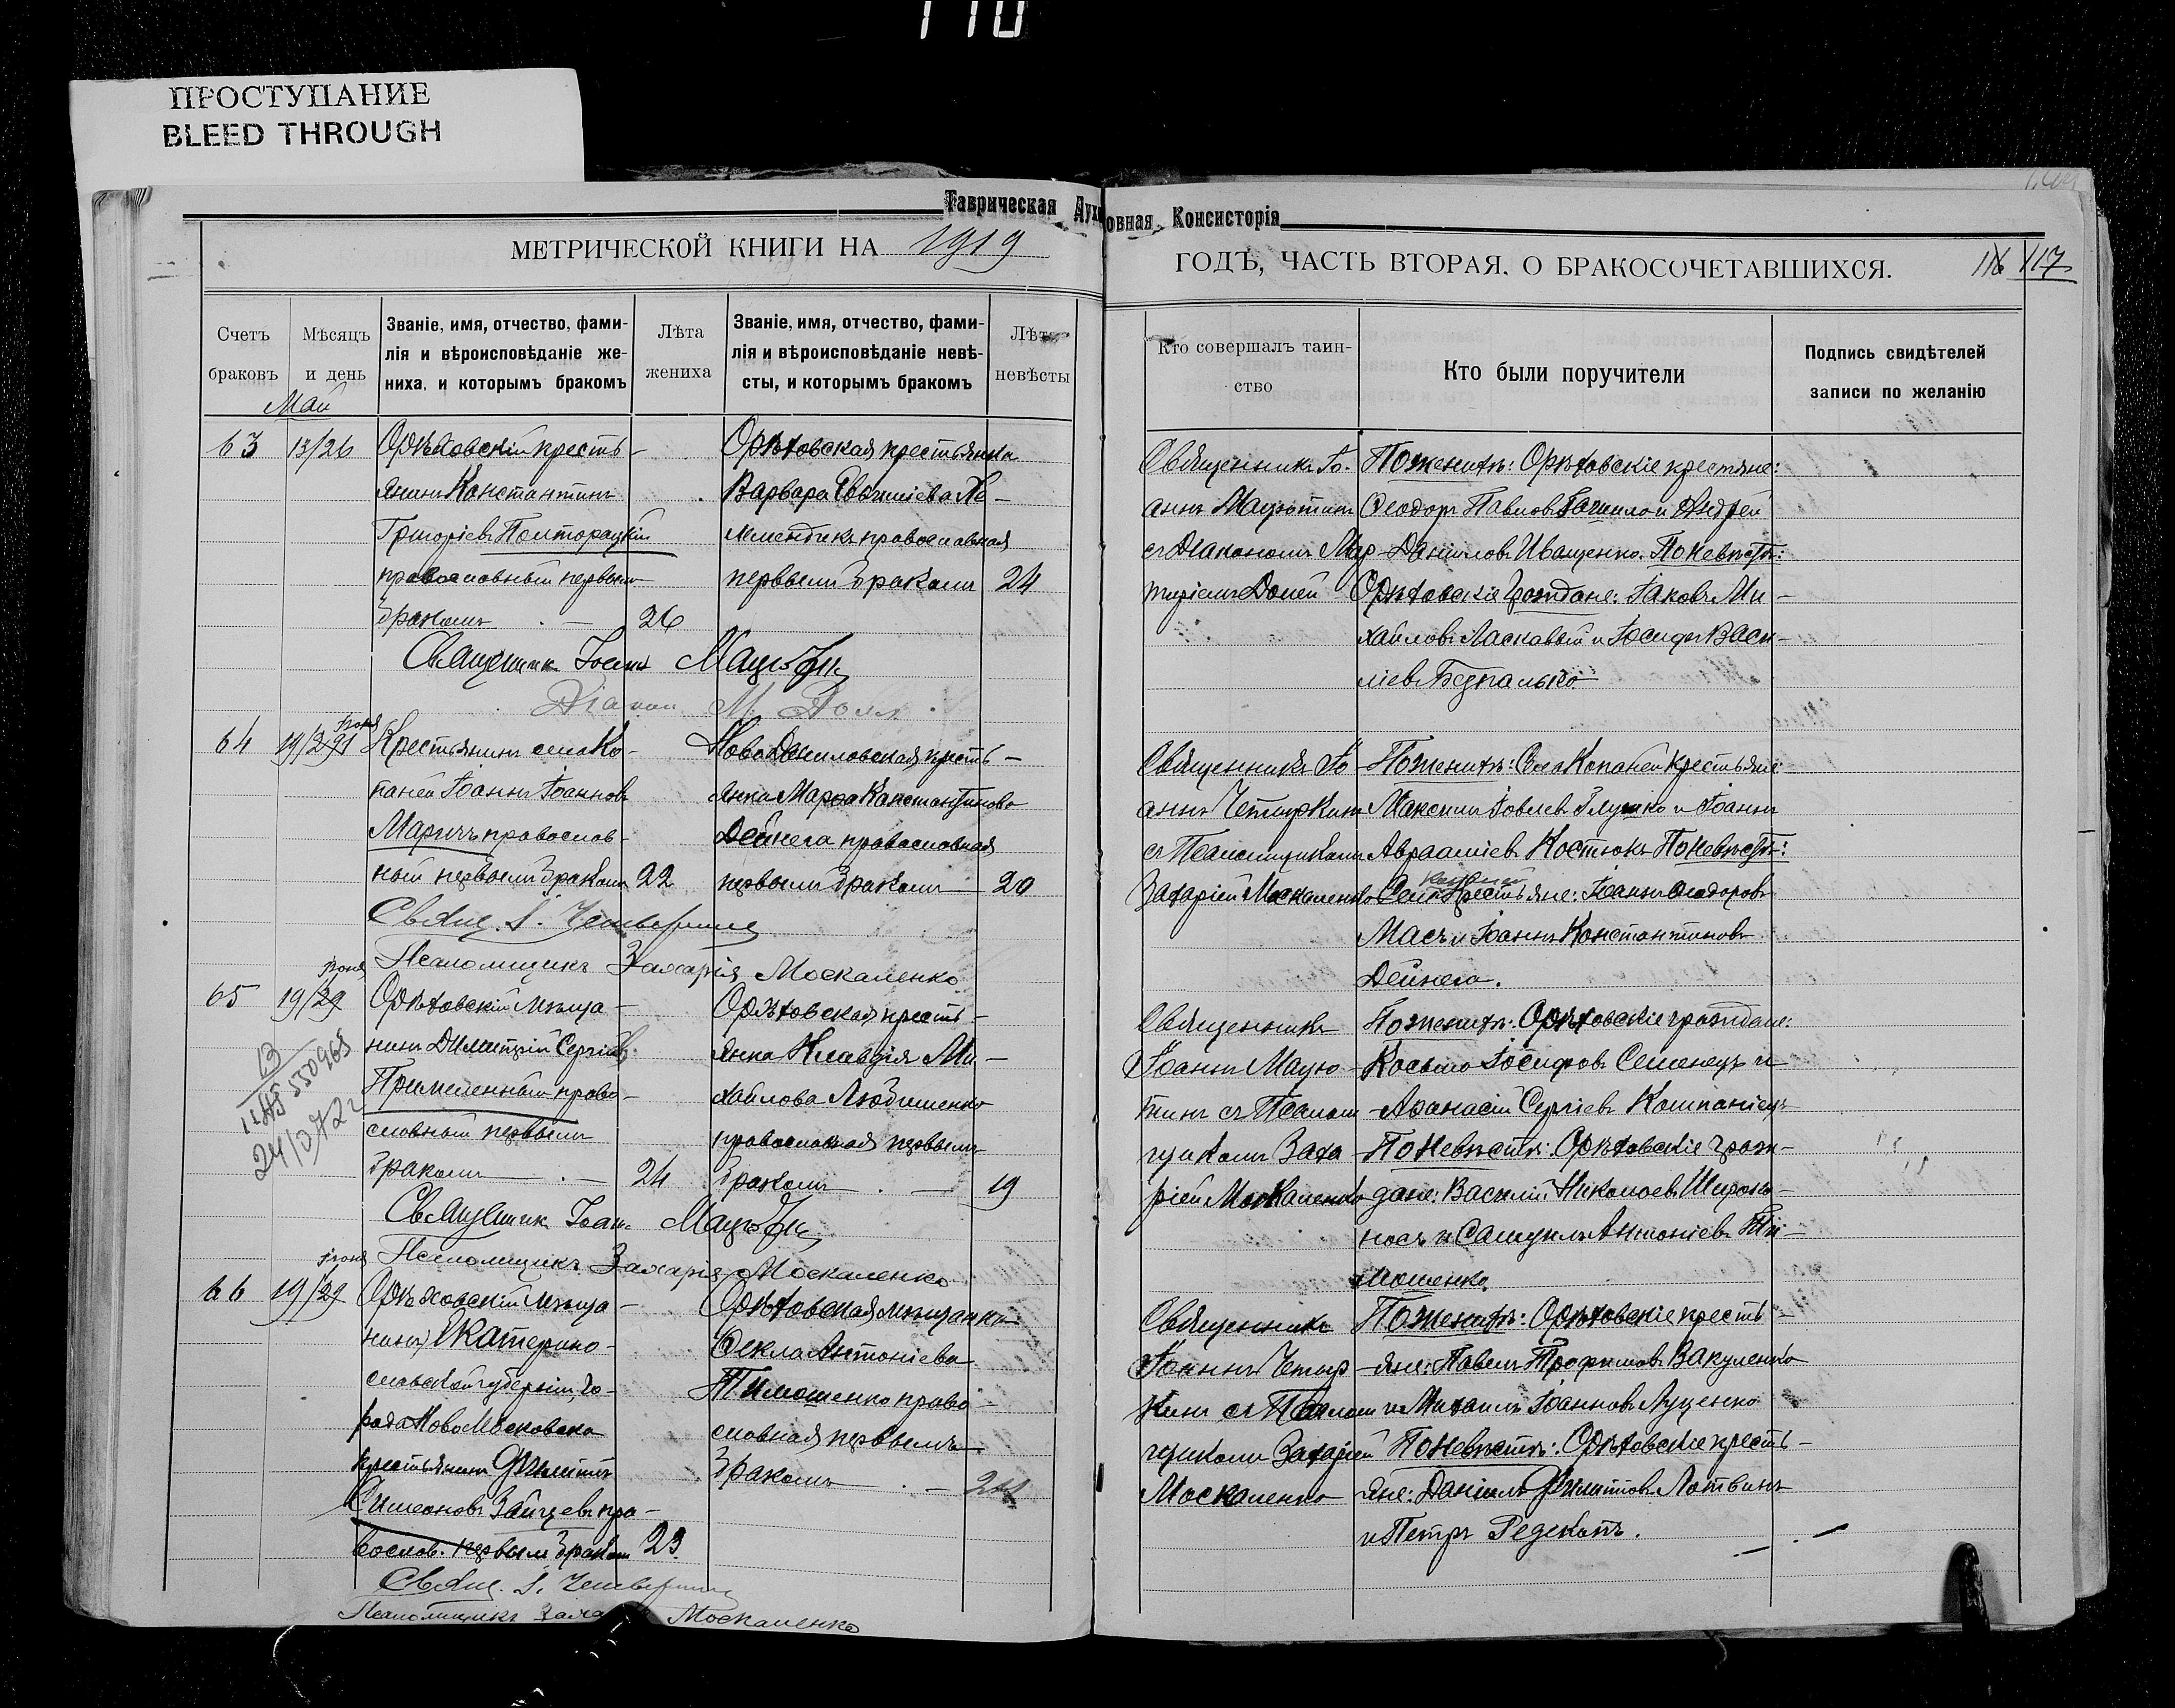 110
ПРОСТУПАНИЕ
BLEED THROUGH
Таврическая Духовная Консисторія
МЕТРИЧЕСКОЙ КНИГИ НА 1919
ГОДѢ, ЧАСТЬ ВТОРАЯ, О БРАКОСОЧЕТАВШИХСЯ.
116 117
Счетъ браковъ
Мѣсяцъ и день
Званіе, имя, отчество, фами-
лія и вѣроисповѣданіе же-
ниха, и которымъ бракомъ
Лѣта жениха
Званіе, имя, отчество, фами-
лія и вѣроисповѣданіе невѣ-
сты, и которымъ бракомъ
Лѣта невѣсты
Кто совершалъ таин-
ство
Кто были поручители
Подпись свидѣтелей
записи по желанію
Май
63
13/26
Орѣховскій кресть-
янинъ Константинъ
Григоріевъ Полторацкій
православный первымъ
бракомъ
26
Орѣховская крестьянка
Варвара Ле-
мендикъ православная
первымъ бракомъ
24
Священникъ Іо-
аннъ Мацютинъ
съ Діакономъ
Долей
По женихѣ: Орѣховскіе крестяне:
Феодоръ Павловъ и Андрей
Даниловъ Иващенко. По невѣстѣ:
Орѣховскіе граждане: Іаковъ Ми-
хайловъ Ласкавый и Іосифъ Васи-
ліевъ
Священник Іоанн Мацютин
Діакон М.
64
Іюня
19/
Крестьянинъ села Ко-
паней Іоаннъ Іоанновъ
Маричъ православ-
ный первымъ бракомъ
22
Ново Даниловская кресть-
янка Марѳа Константинова
Дейнега православная
первымъ бракомъ
20
Священникъ Іо-
аннъ Четыркинъ
съ Псаломщикомъ
Захаріей Москаленко
По женихѣ: Села Копаней крестьяне
Максимъ Іовлевъ Глушко и Іоаннъ
Авраамiевъ Костюкъ По невѣстѣ:
Села Копаней Крестьяне: Іоаннъ Феодоровъ
Масъ и Іоаннъ Константиновъ
Дейнега.
Свящ. І.
Псаломщикъ Захарія Москаленко
65
Іюня
19/29
Орѣховскій мѣща-
нинъ Димитрій Сергіевъ
православный первымъ
бракомъ
24
Орѣховская кресть-
янка Клавдія Ми-
хайлова Любименко
православная первымъ
бракомъ
19
Священникъ
Іоаннъ Мацю-
тинъ съ Псалом-
щикомъ Заха-
ріей Москаленко
По женихѣ: Орѣховскіе граждане:
Косьма Іосифовъ Семенецъ и
Аѳанасій Сергіевъ Компаніецъ
По невѣстѣ: Орѣховскіе граж-
дане: Василій Николаевъ Широко-
носъ и Самуилъ Антоніевъ Ти-
мошенко.
Священник Іоан. Мацютин
Псаломщикъ Захарія Москаленко
66
Іюня
19/29
Орѣховскій мѣща-
нинъ Екатерино-
славской губерніи, го-
рода Новомосковска
крестьянинъ Филиппъ
Симеоновъ Зайцевъ пра-
восл. первымъ бракомъ
23
Орѣховская мѣщанка
Ѳекла Антоніева
Тимошенко право-
славная первымъ
бракомъ
Священникъ
Іоаннъ Четыр-
кинъ съ Псалом-
щикомъ Захаріей
Москаленко
По женихѣ: Орѣховскіе кресть-
яне: Павелъ Трофимовъ Вакуленко
и Михаилъ Іоанновъ Луценко
По невѣстѣ: Орѣховскіе кресть-
яне: Даніилъ Филипповъ Литвинъ
и Петръ Редекопъ.
Свящ. І.
Псаломщикъ Москаленко